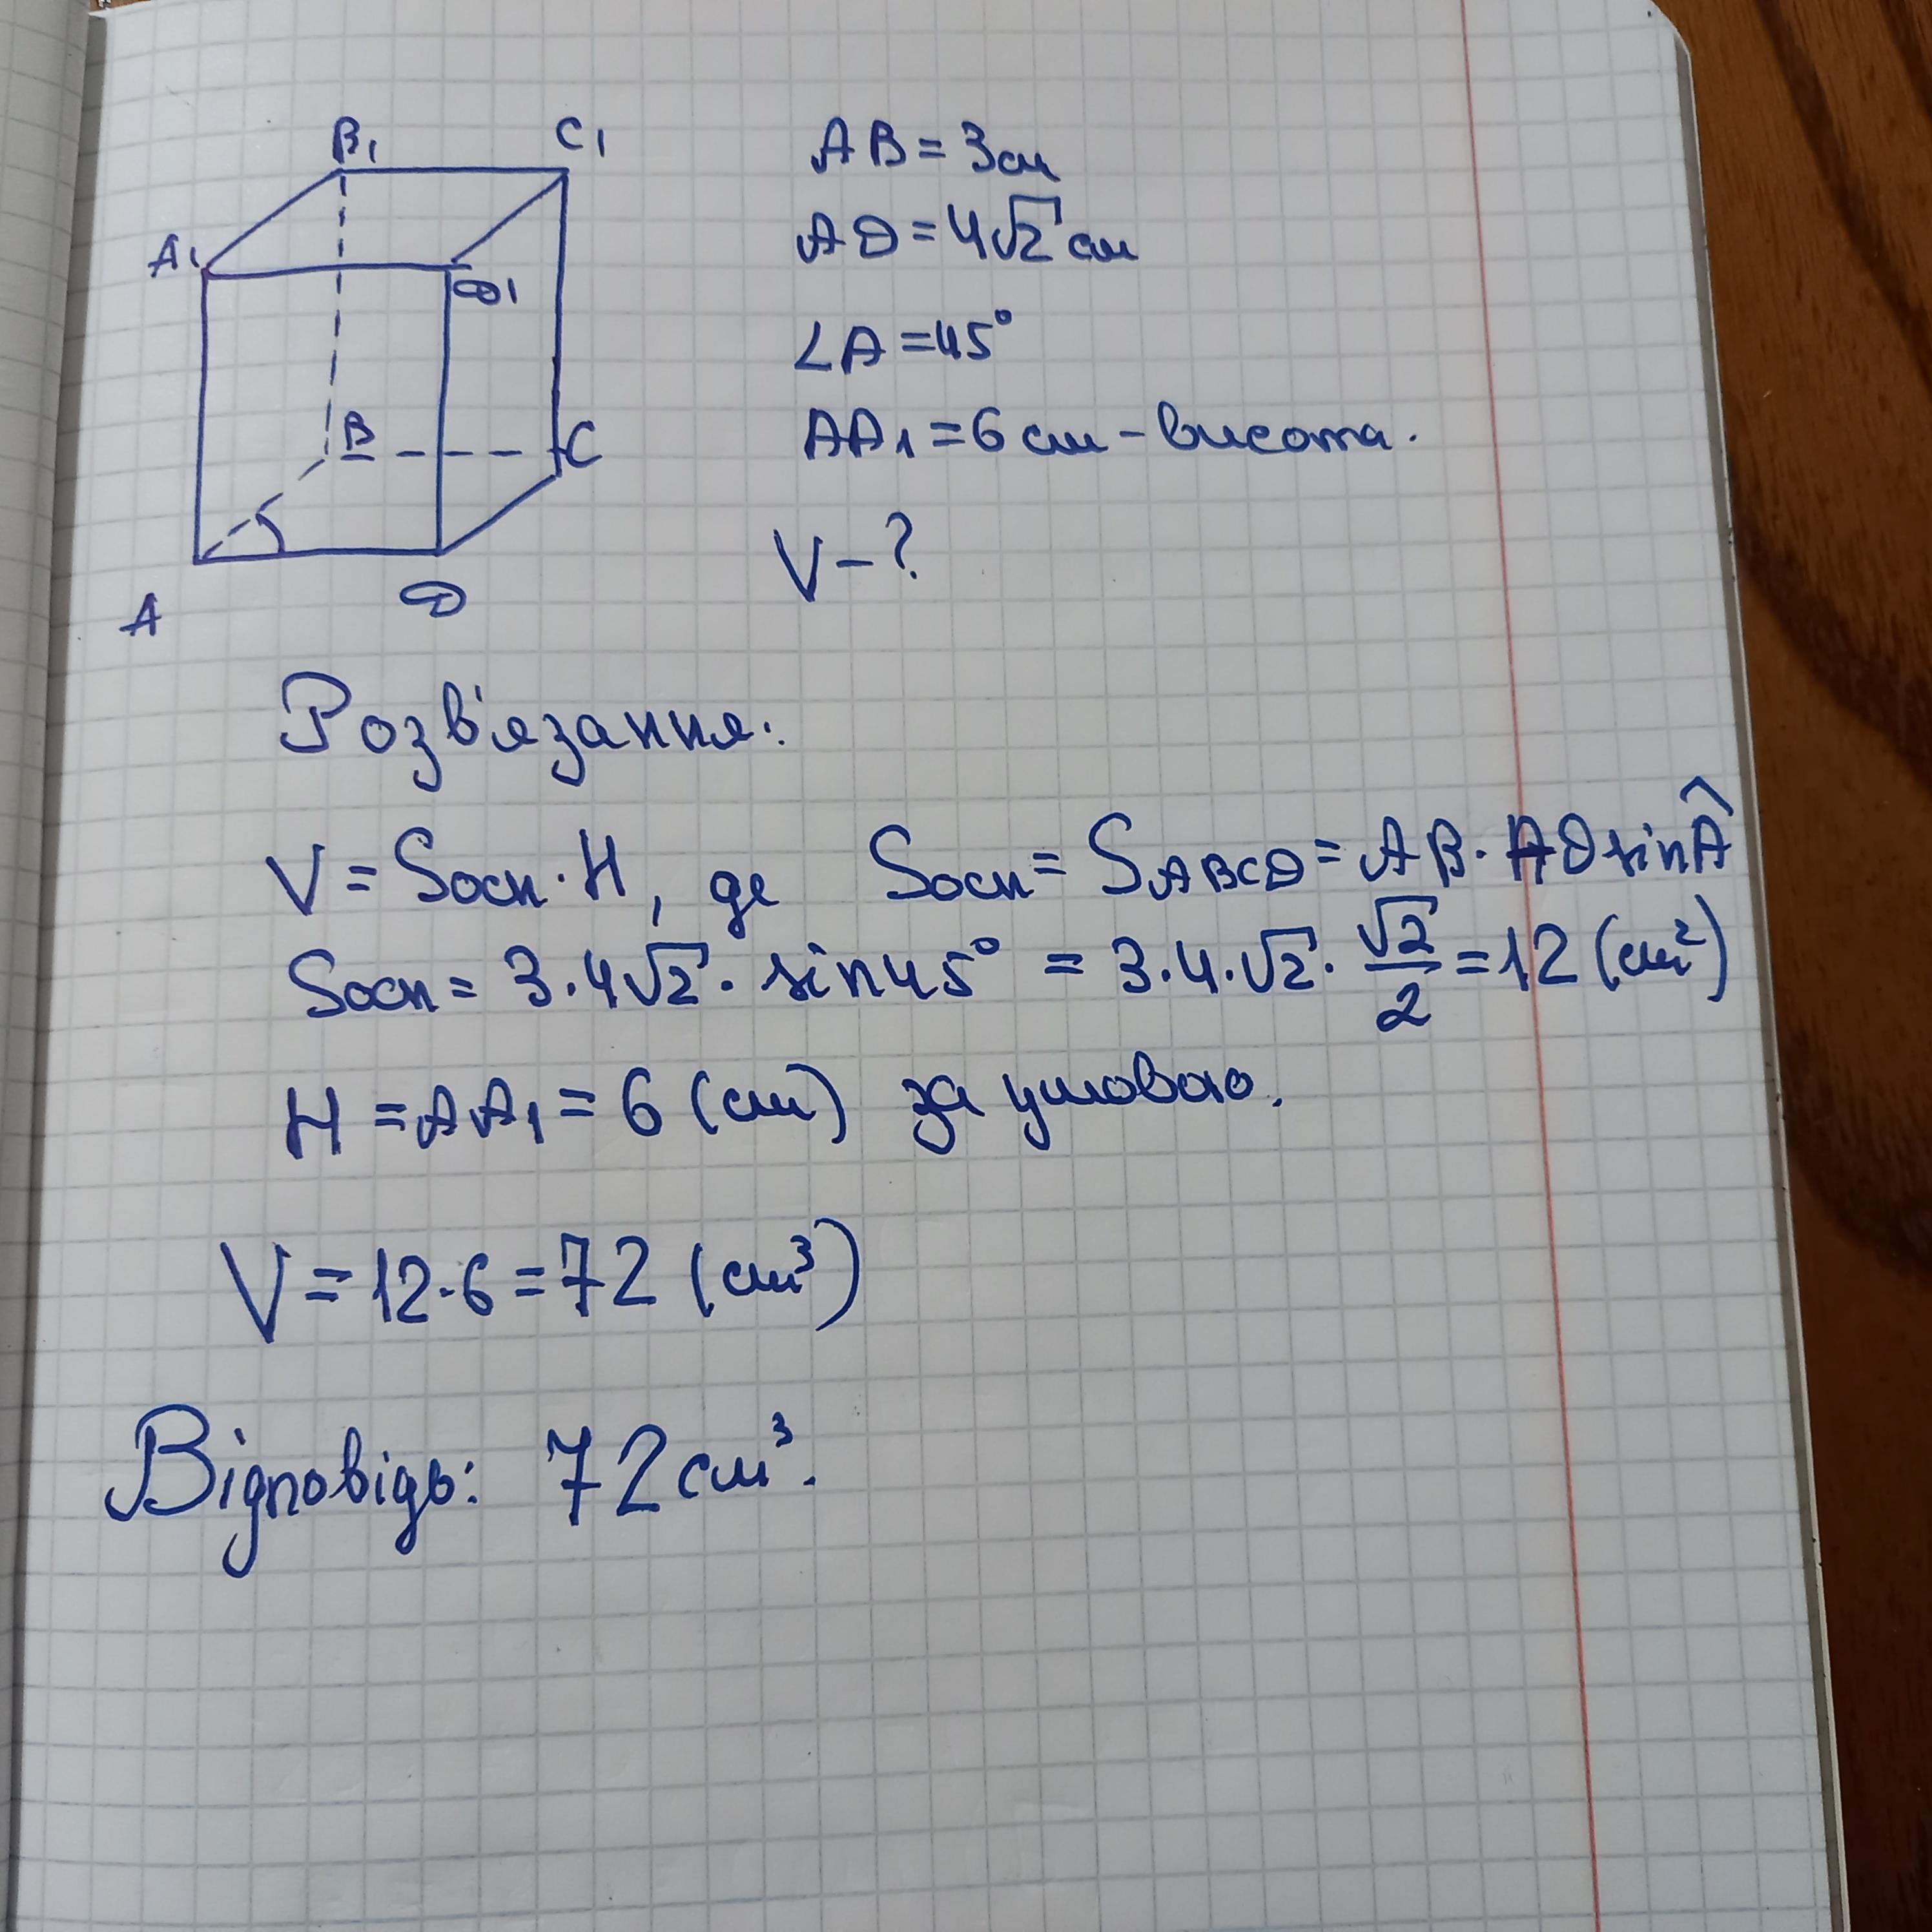 B₁ C₁
A₁ D₁
B C
A D
AB = 3см
AD = 4√2 см
∠A = 45°
AA₁ = 6 см - висота.
V - ?
Розв'язання:
V = Sосн · H, де Sосн = SABCD = AB · AD sin Â
Sосн = 3 · 4√2 · sin 45° = 3 · 4 · √2 · √2/2 = 12 (см²)
H = AA₁ = 6 (см) за умовою.
V = 12 · 6 = 72 (см³)
Відповідь: 72 см³.